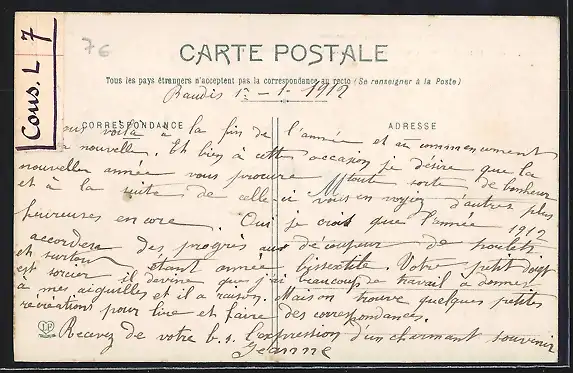 Cous. L 7
76
CARTE POSTALE
Tous les pays étrangers n'acceptent pas la correspondance au recto (Se renseigner à la Poste)
Baudis 1er - 1 - 1912
CORRESPONDANCE
ADRESSE
voilà à la fin de l'année et au commencement
nouvelle. Et bien à cette occasion je désire que la
nouvelle année vous procure toute sorte de bonheur
et à la suite de celle-ci vous en voyez d'autres plus
heureuses encore. Oui je crois que l'année 1912
accordera des progrès aux découpeur de
et surtout étant année bissextile. Votre petit doigt
est sorcier il devine que j'ai beaucoup de travail à donner
à mes aiguilles et il a raison. Mais on trouve quelques petites
récréations pour lire et faire des correspondances.
Recevez de votre b. s. l'expression d'un charmant souvenir
Jeanne